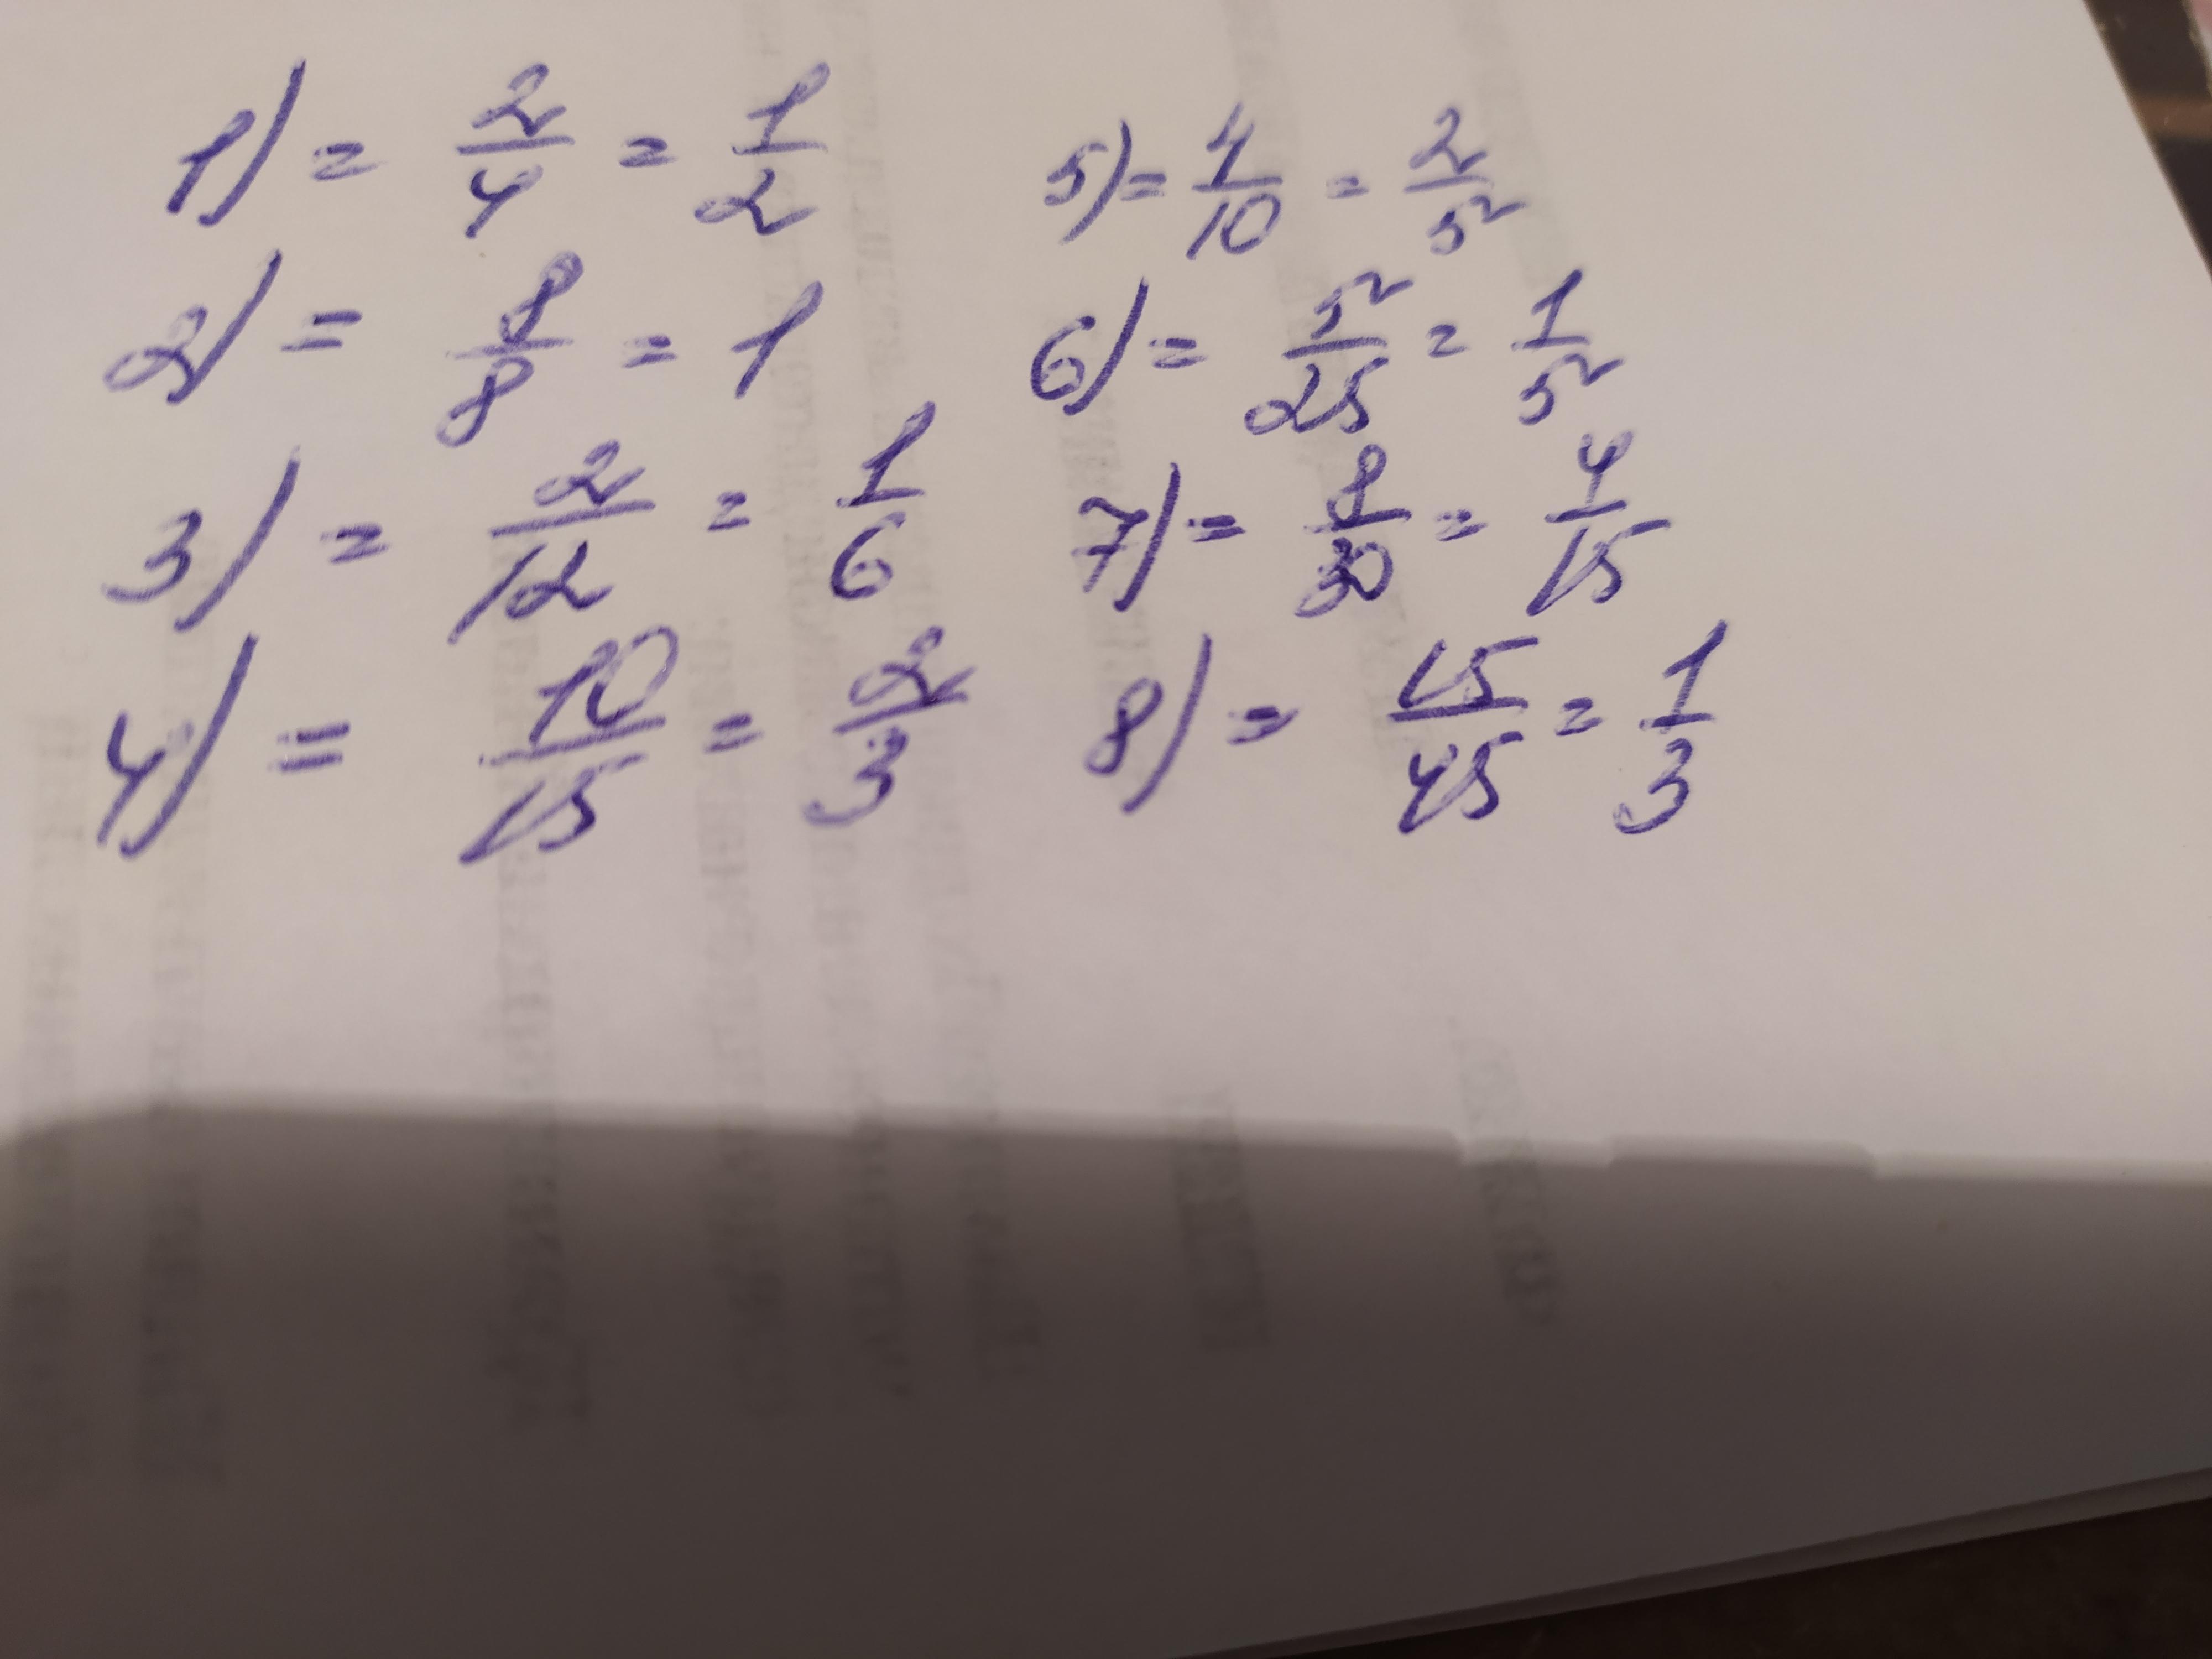 1) = 2/4 = 1/2
2) = 8/8 = 1
3) = 2/12 = 1/6
4) = 10/15 = 2/3
5) = 4/10 = 2/5
6) = 5/25 = 1/5
7) = 8/30 = 4/15
8) = 15/45 = 1/3